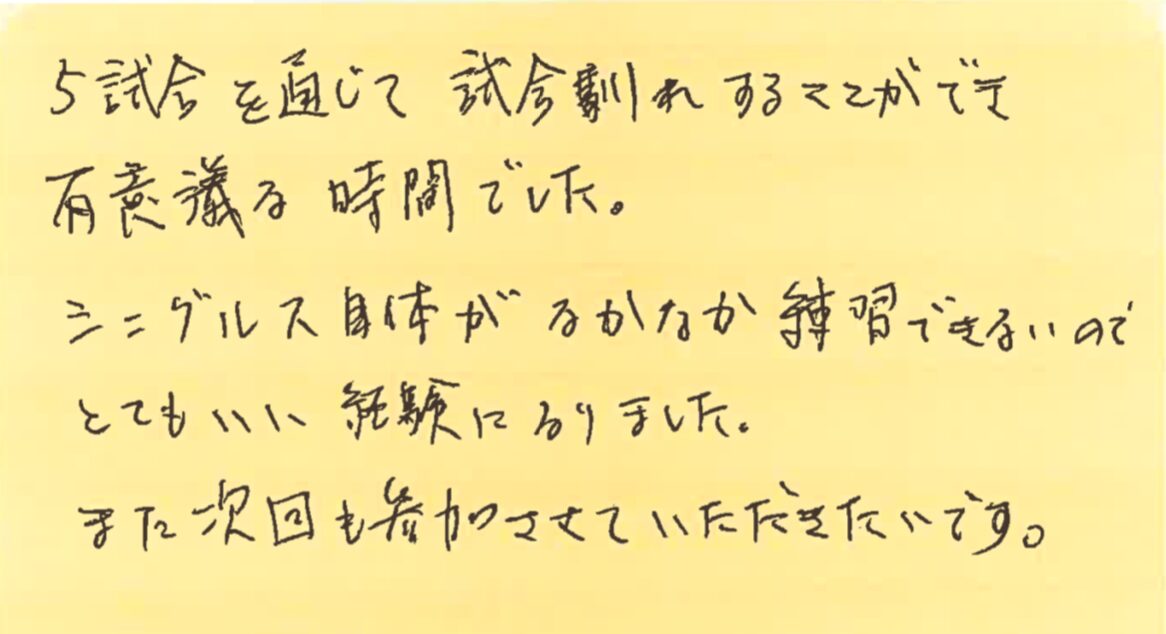 5試合を通じて 試合馴れすることができ
有意議な 時間でした。
シングルス自体がなかなか練習できないので
とてもいい経験になりました。
また次回も参加させていただきたいです。